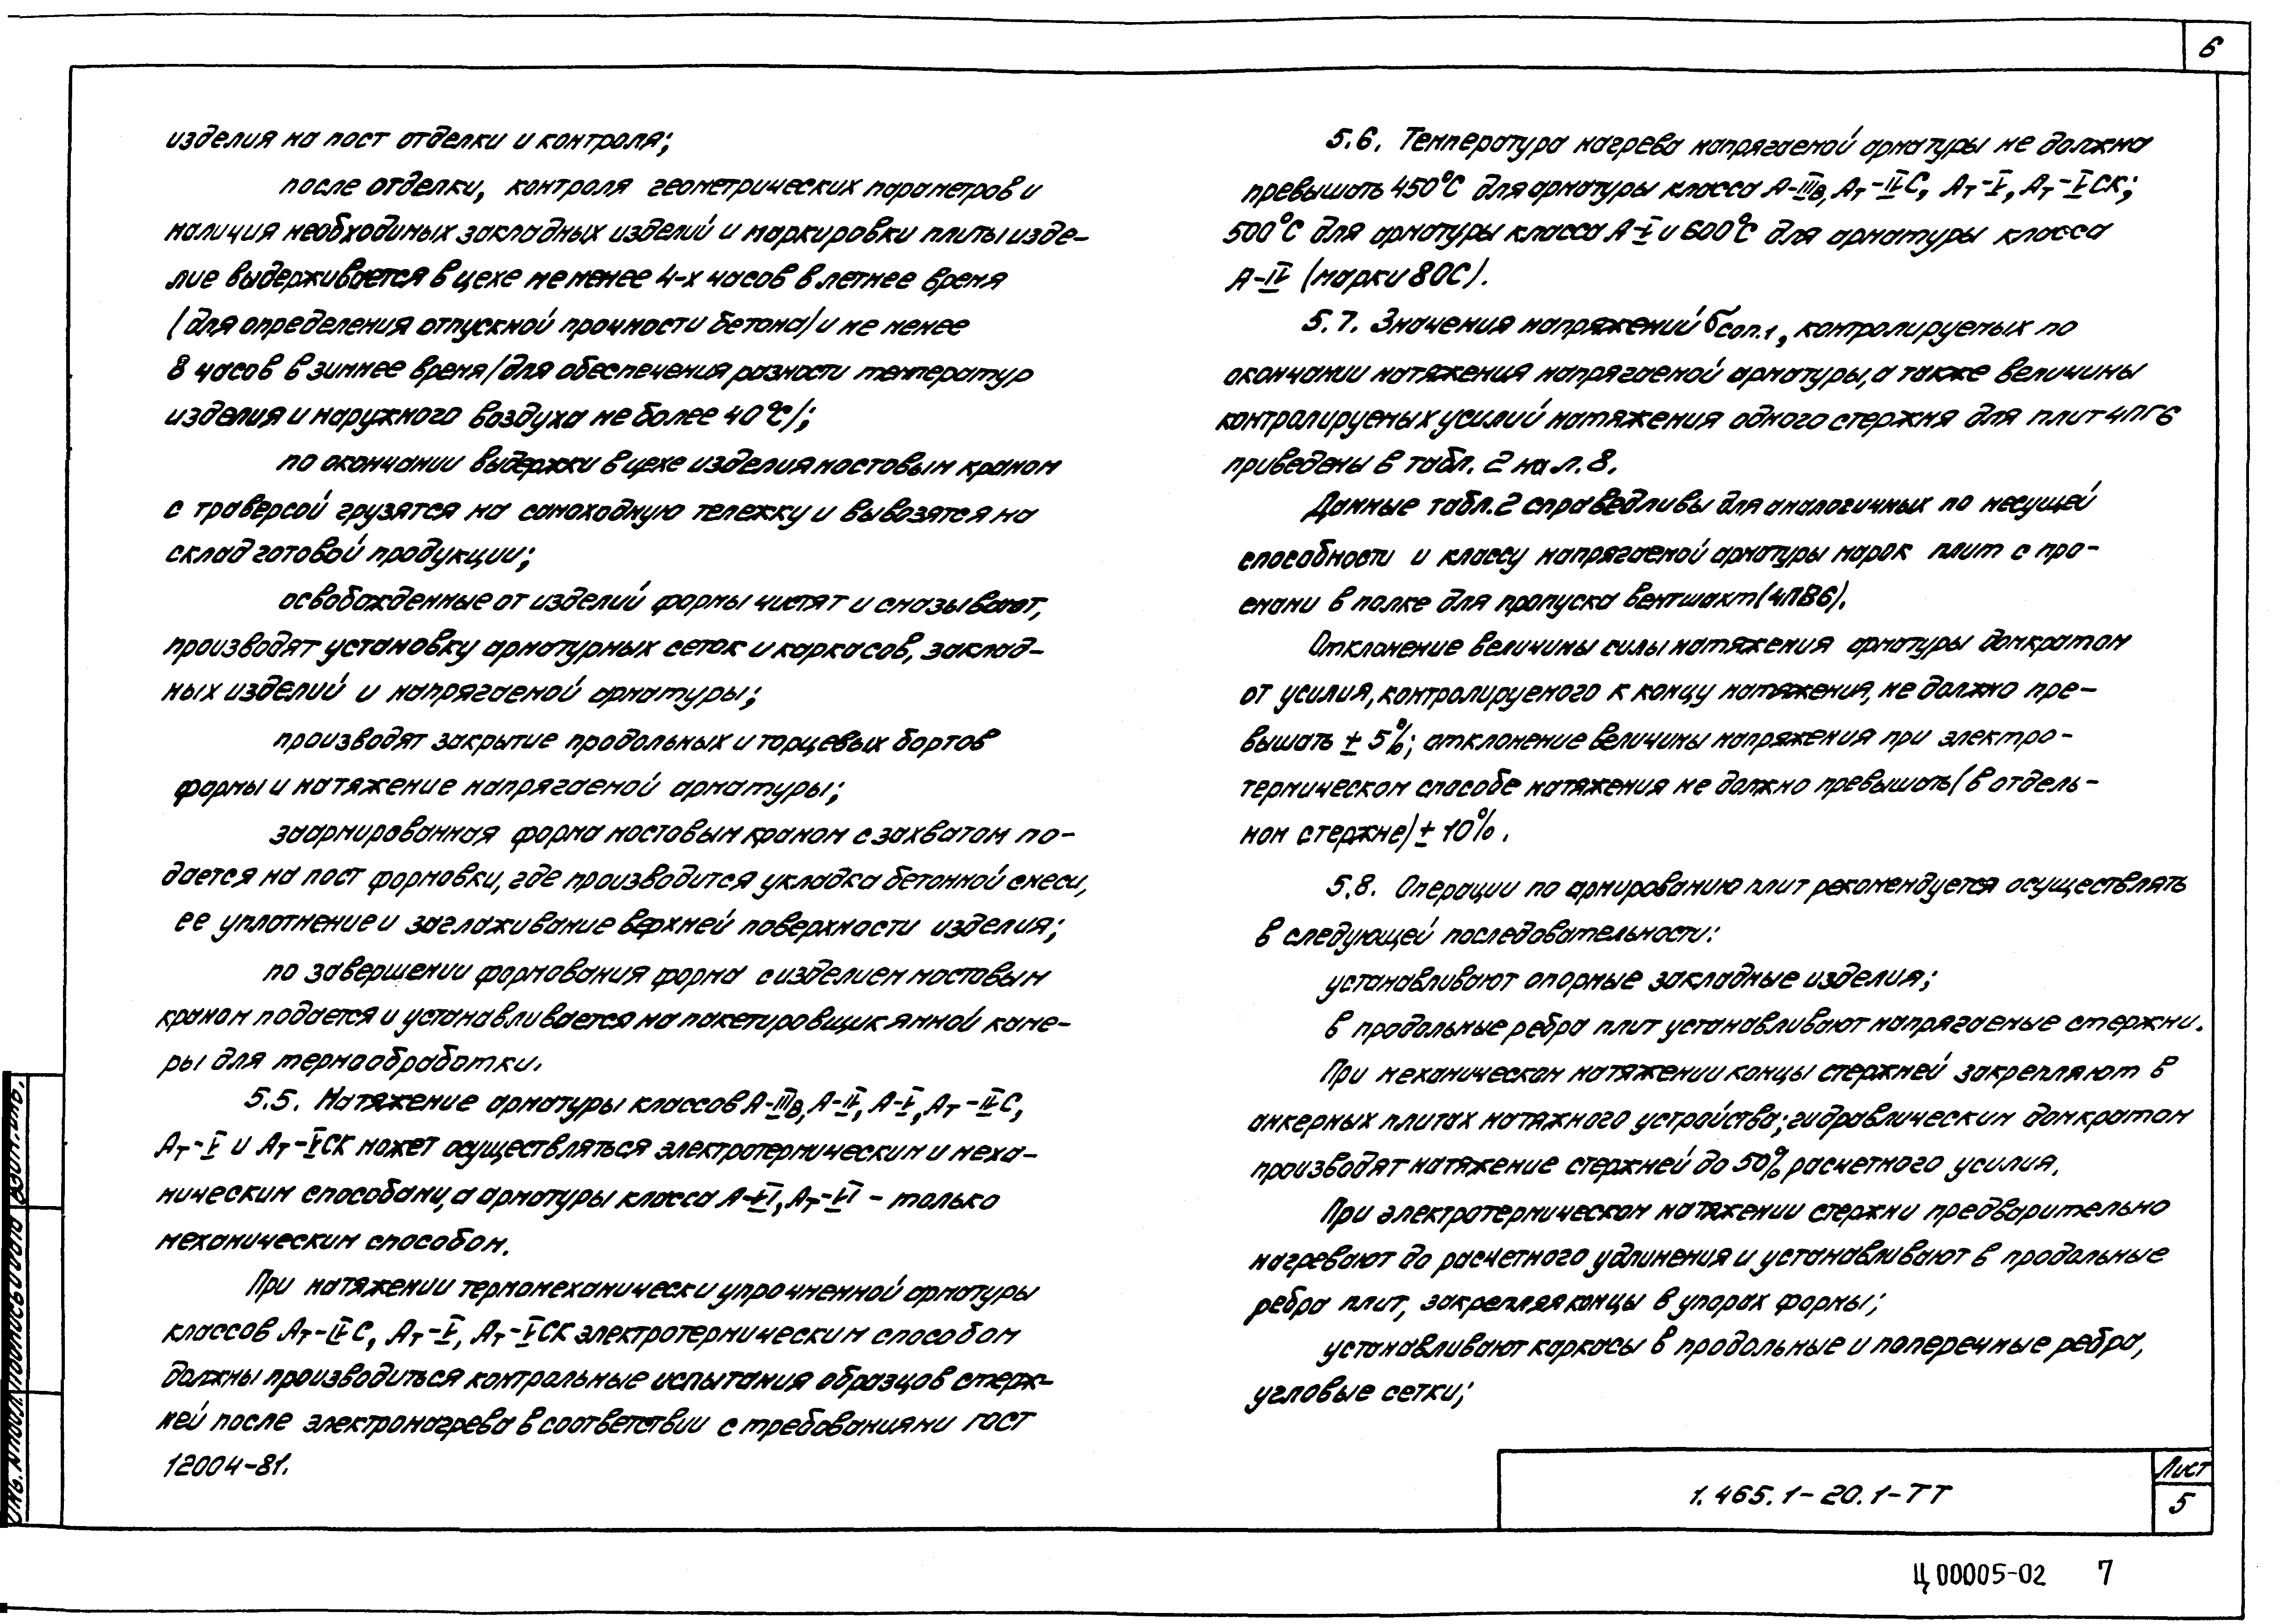 6
изделия на пост отделки и контроля;
после отделки, контроля геометрических параметров и
наличия необходимых закладных изделий и маркировки плиты изде-
лие выдерживается в цехе не менее 4-х часов в летнее время
/для определения отпускной прочности бетона/ и не менее
8 часов в зимнее время /для обеспечения разности температур
изделия и наружного воздуха не более 40°С/;
по окончании выдержки в цехе изделия мостовым краном
с траверсой грузятся на самоходную тележку и вывозятся на
склад готовой продукции;
освобожденные от изделий формы чистят и смазывают,
производят установку арматурных сеток и каркасов, заклад-
ных изделий и напрягаемой арматуры;
производят закрытие продольных и торцевых бортов
формы и натяжение напрягаемой арматуры;
заармированная форма мостовым краном с захватом по-
дается на пост формовки, где производится укладка бетонной смеси,
ее уплотнение и заглаживание верхней поверхности изделия;
по завершении формования форма с изделием мостовым
краном подается и устанавливается на пакетировщик ямной каме-
ры для термообработки.
5.5. Натяжение арматуры классов А-IIIв, А-IV, А-V, Ат-IVС,
Ат-V и Ат-VСК может осуществляться электротермическим и меха-
ническим способами, а арматуры класса А-VI, Ат-VI - только
механическим способом.
При натяжении термомеханически упрочненной арматуры
классов Ат-IVС, Ат-V, Ат-VСК электротермическим способом
должны производиться контрольные испытания образцов стерж-
ней после электронагрева в соответствии с требованиями ГОСТ
12004-81.
5.6. Температура нагрева напрягаемой арматуры не должна
превышать 450°С для арматуры класса А-IIIв, Ат-IVС, Ат-V, Ат-VСК;
500°С для арматуры класса А-V и 600°С для арматуры класса
А-IV (марки 80С).
5.7. Значения напряжений σсоп.1, контролируемых по
окончании натяжения напрягаемой арматуры, а также величины
контролируемых усилий натяжения одного стержня для плит 4ПГ6
приведены в табл. 2 на л. 8.
Данные табл. 2 справедливы для аналогичных по несущей
способности и классу напрягаемой арматуры марок плит с про-
емами в полке для пропуска вентшахт (4ПВ6).
Отклонение величины силы натяжения арматуры домкратом
от усилия, контролируемого к концу натяжения, не должно пре-
вышать ± 5%; отклонение величины напряжения при электро-
термическом способе натяжения не должно превышать (в отдель-
ном стержне) ± 10%.
5.8. Операции по армированию плит рекомендуется осуществлять
в следующей последовательности:
устанавливают опорные закладные изделия;
в продольные ребра плит устанавливают напрягаемые стержни.
При механическом натяжении концы стержней закрепляют в
анкерных плитах натяжного устройства; гидравлическим домкратом
производят натяжение стержней до 50% расчетного усилия.
При электротермическом натяжении стержни предварительно
нагревают до расчетного удлинения и устанавливают в продольные
ребра плит, закрепляя концы в упорах формы;
устанавливают каркасы в продольные и поперечные ребра,
угловые сетки;
Инв. № подл. Подпись и дата Взам. инв.
1.465.1-20.1-ТТ
Лист
5
Ц 00005-02 7